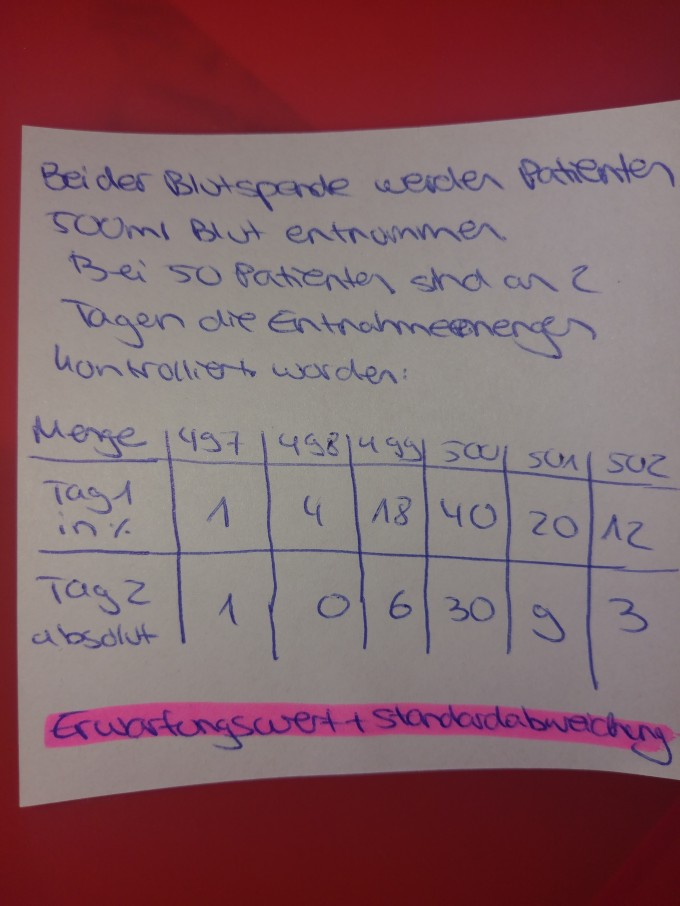 Bei der Blutspende werden Patienten
500ml Blut entnommen
Bei 50 Patienten sind an 2
Tagen die Entnahmemengen
kontrolliert worden:
Menge 497 498 499 500 501 502
Tag 1 in % 1 4 18 40 20 12
Tag 2 absolut 1 0 6 30 9 3
Erwartungswert + Standardabweichung